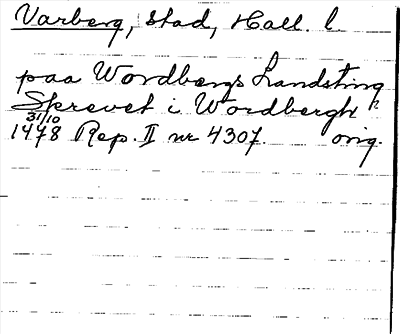 Varberg, stad, Hall. l
paa Wordbergs Landsting
Skrevet i Wordbergh
31/10
1478 Rep. II nr 4307. orig.